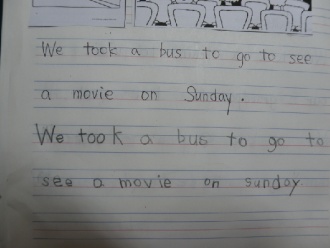 We took a bus to go to see
a movie on Sunday.
We took a bus to go to
see a movie on sunday